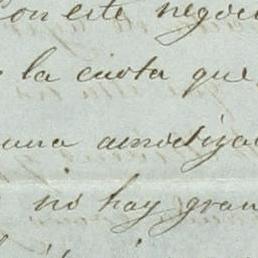 Con este negoci
la cuota que
una amortiza
no hay gran